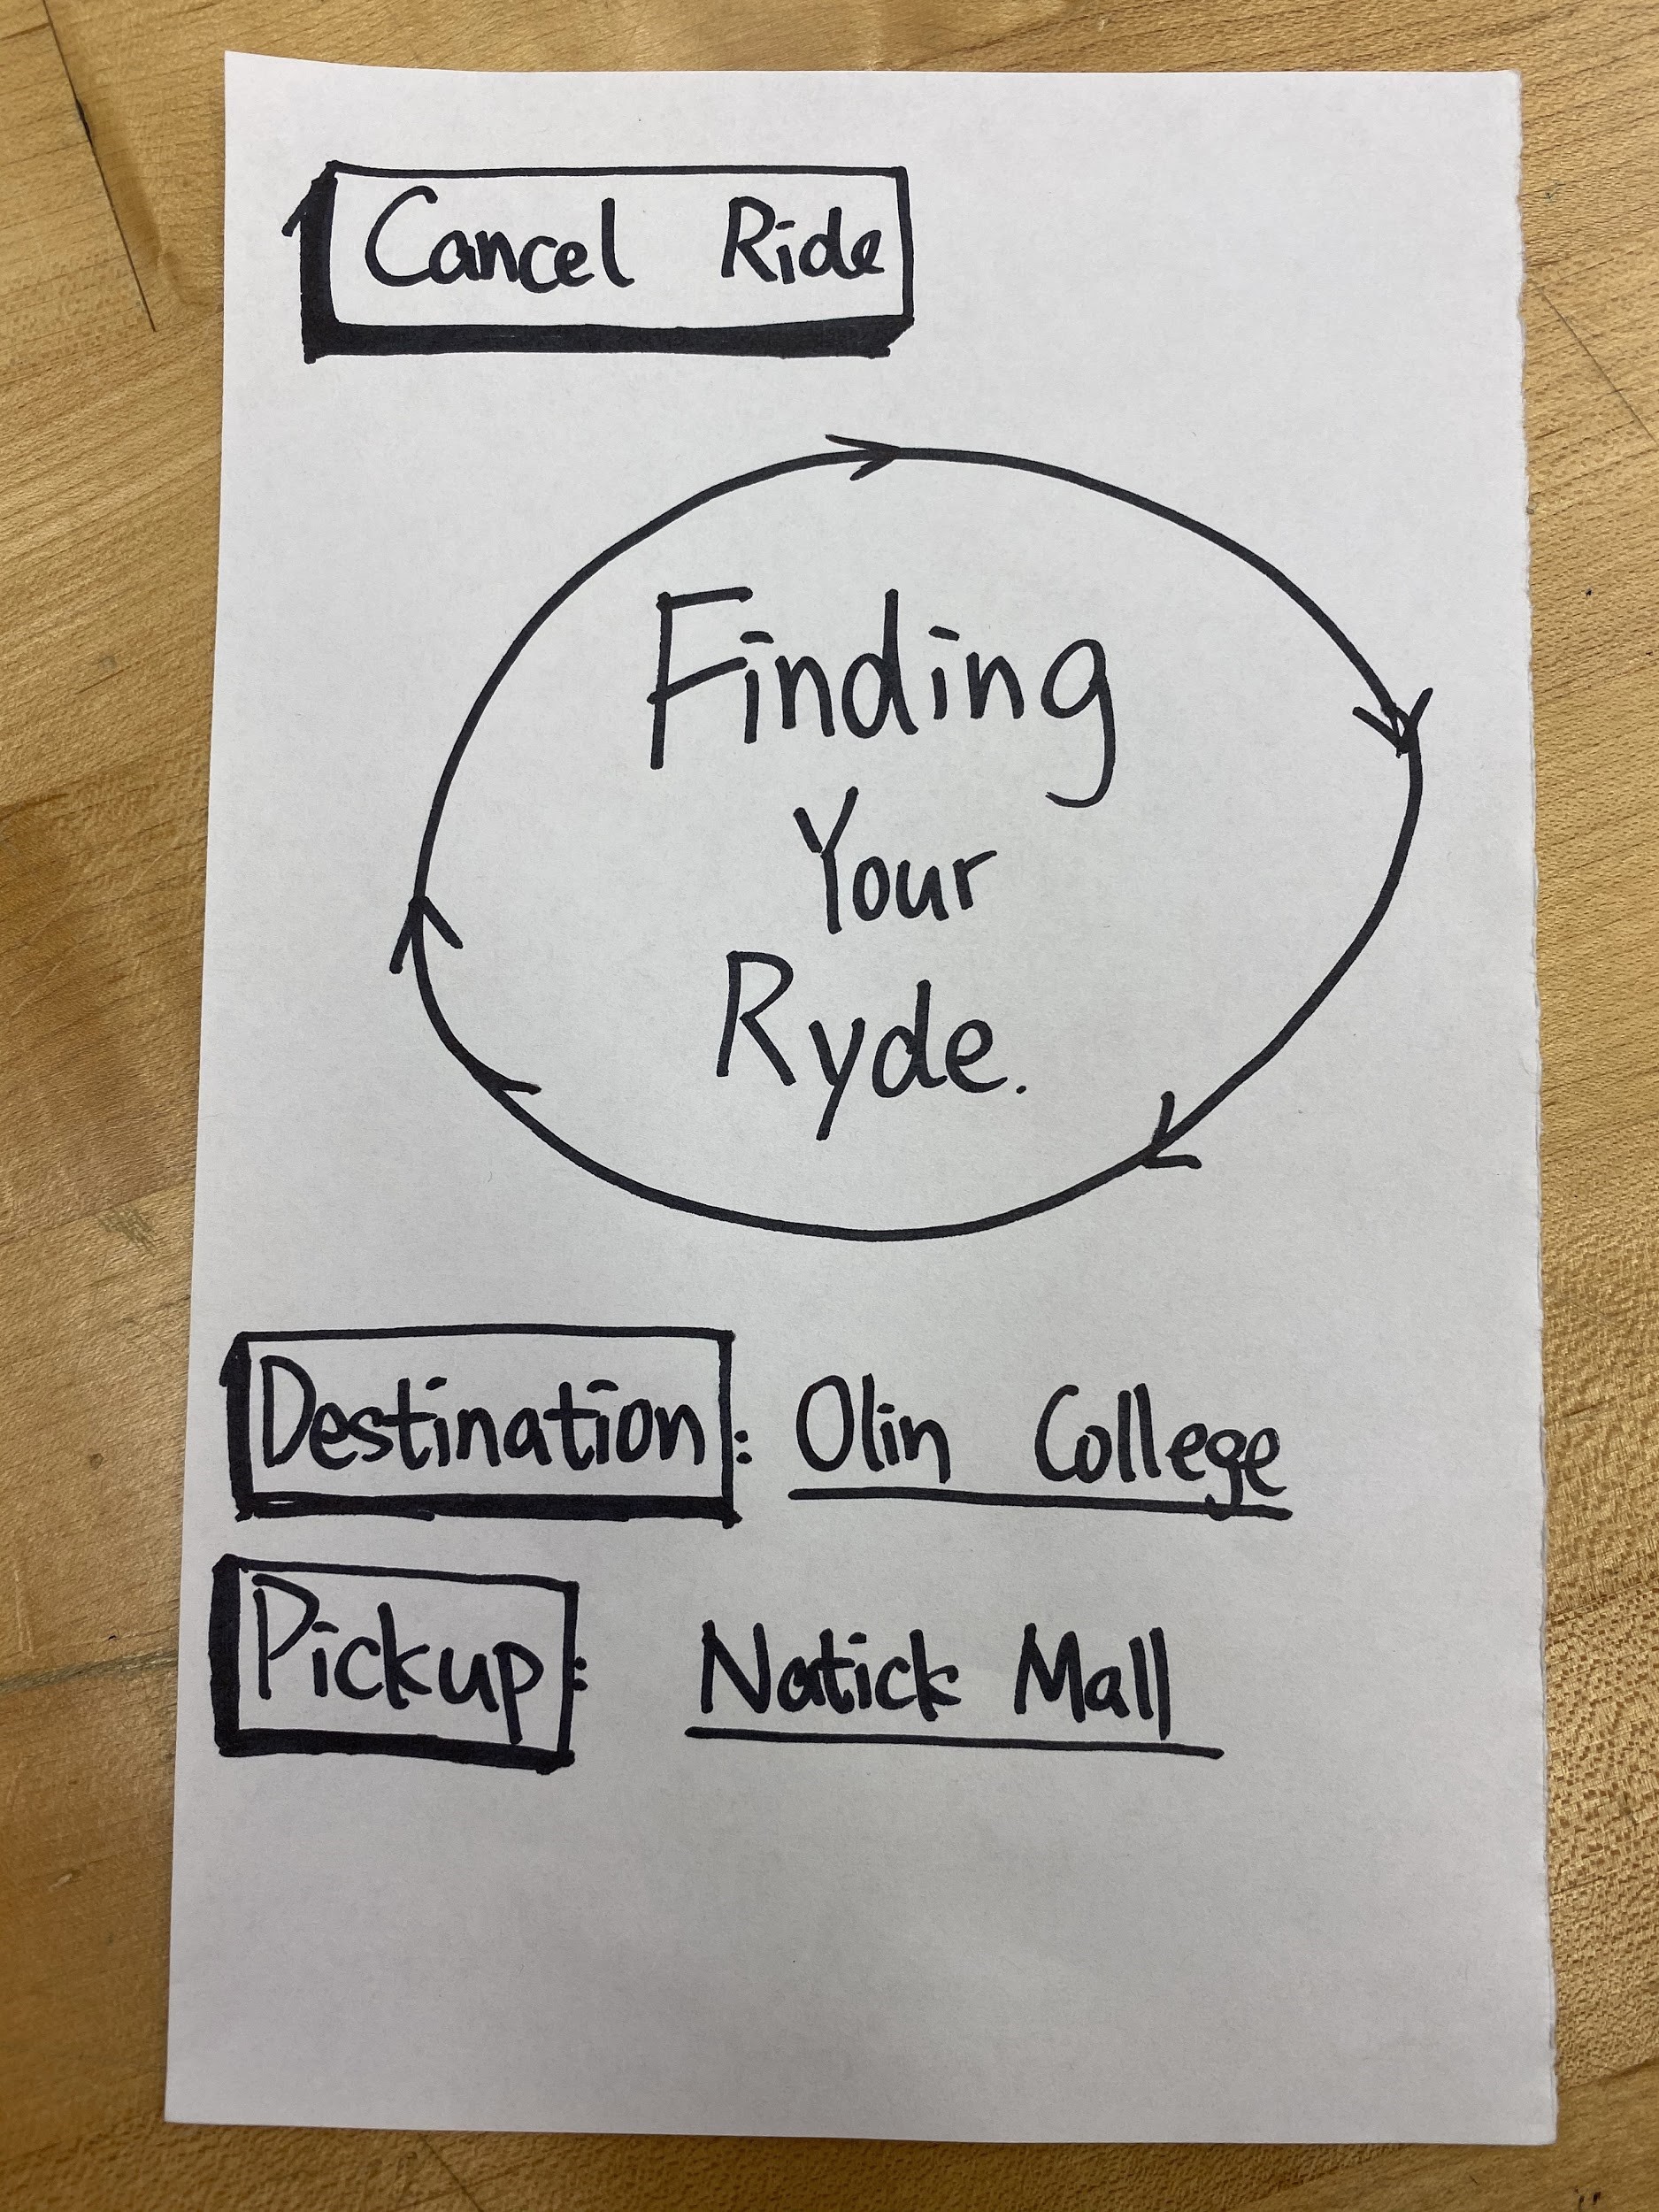 Cancel Ride
Finding
Your
Ryde.
Destination: Olin College
Pickup: Natick Mall